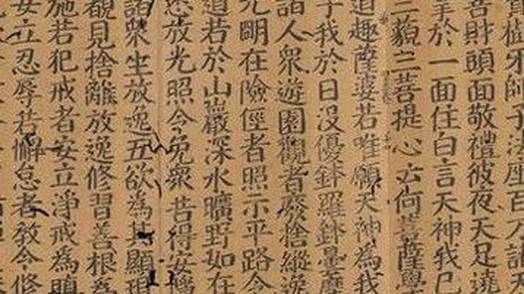 寶樹邪師子法座百
善財頭面敬禮彼夜天足遶
掌於一面住白言天神我已
三藐三菩提心云何菩薩學
道趣薩婆若唯願天神為我
子我於日没優鉢羅鉢曇摩
諸人衆遊園觀者廢捨縱逸
光明在險徑者照示平路令
道若於山巖深水曠野如在
悉放光照令免衆苦得安隱
諸衆生放逸五欲為其顯現
觀見捨離放逸修習善根為
施若犯戒者安立淨戒為瞋
安立忍辱若懈怠者教令修